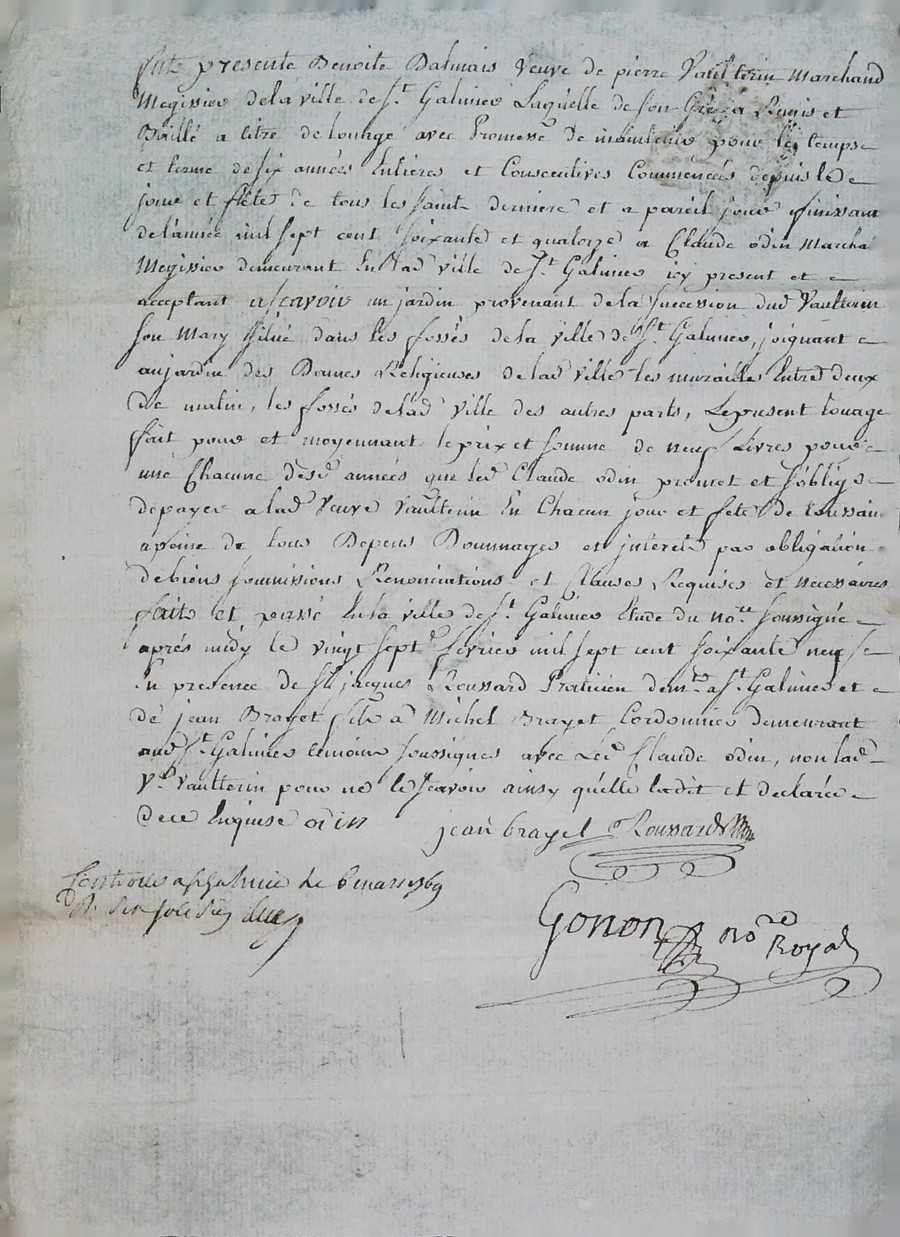 Fut présente Benoite Dalmais veuve de pierre Vaulterin Marchand
Megissier de la ville de St. Galmier Laquelle de son Gré a Remis et
Baillé a titre de louage avec Promesse De maintenir pour le temps
et terme de six années Entieres et Consecutives Commencées depuis le
jour et fête De tous les saints derniere et a pareil jour finissant
de l'année mil sept cent soixante et quatorze a Claude odin Marcha
Megissier demeurant En lad ville de St. Galmier icy present et
acceptant ascavoir un jardin provenant de la succession dud Vaulterin
son Mary situé dans les fossés de la ville de St. Galmier, joignant
au jardin des Dames Religieuses de lad ville les murailles Entre deux
De matin, les fossés de lad ville des autres parts, Le present louage
fait pour et moyennant le prix et somme de neuf Livres pour
une Chacune desd années que led Claude odin promet et s'oblige
de payer a lad Veuve Vaulterin En Chacun jour et fete De toussain
a peine de tous Depens Dommages et interets par obligation
de biens soumissions Renonciations et Clauses Requises et necessaires
fait et passé En la ville de St. Galmier Etude du nore. soussigné
après midy le vingt sept fevrier mil sept cent soixante neuf
En presence de Sr. jacques Roussard Praticien demt. a St. Galmier et
de jean Brayet fils a Michel Brayet Cordonnier demeurant
aud St. Galmier temoins soussignés avec Led Claude odin, non lad
Ve. Vaulterin pour ne le scavoir ainsy qu'elle la dit et declaré
de ce Enquise odin jean brayet Roussard
Controlle a St Galmier le 6 mars 1769
Gonon nore Royal